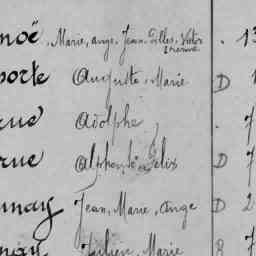 noë, Marie, ange, Jean, Gilles, Victor . 13
Etienne
porte Auguste, Marie D 1
rue Adolphe, . 7
rue Alphonse Félix D 7
unay Jean, Marie, ange D 2
nay Julien, Marie 8 7